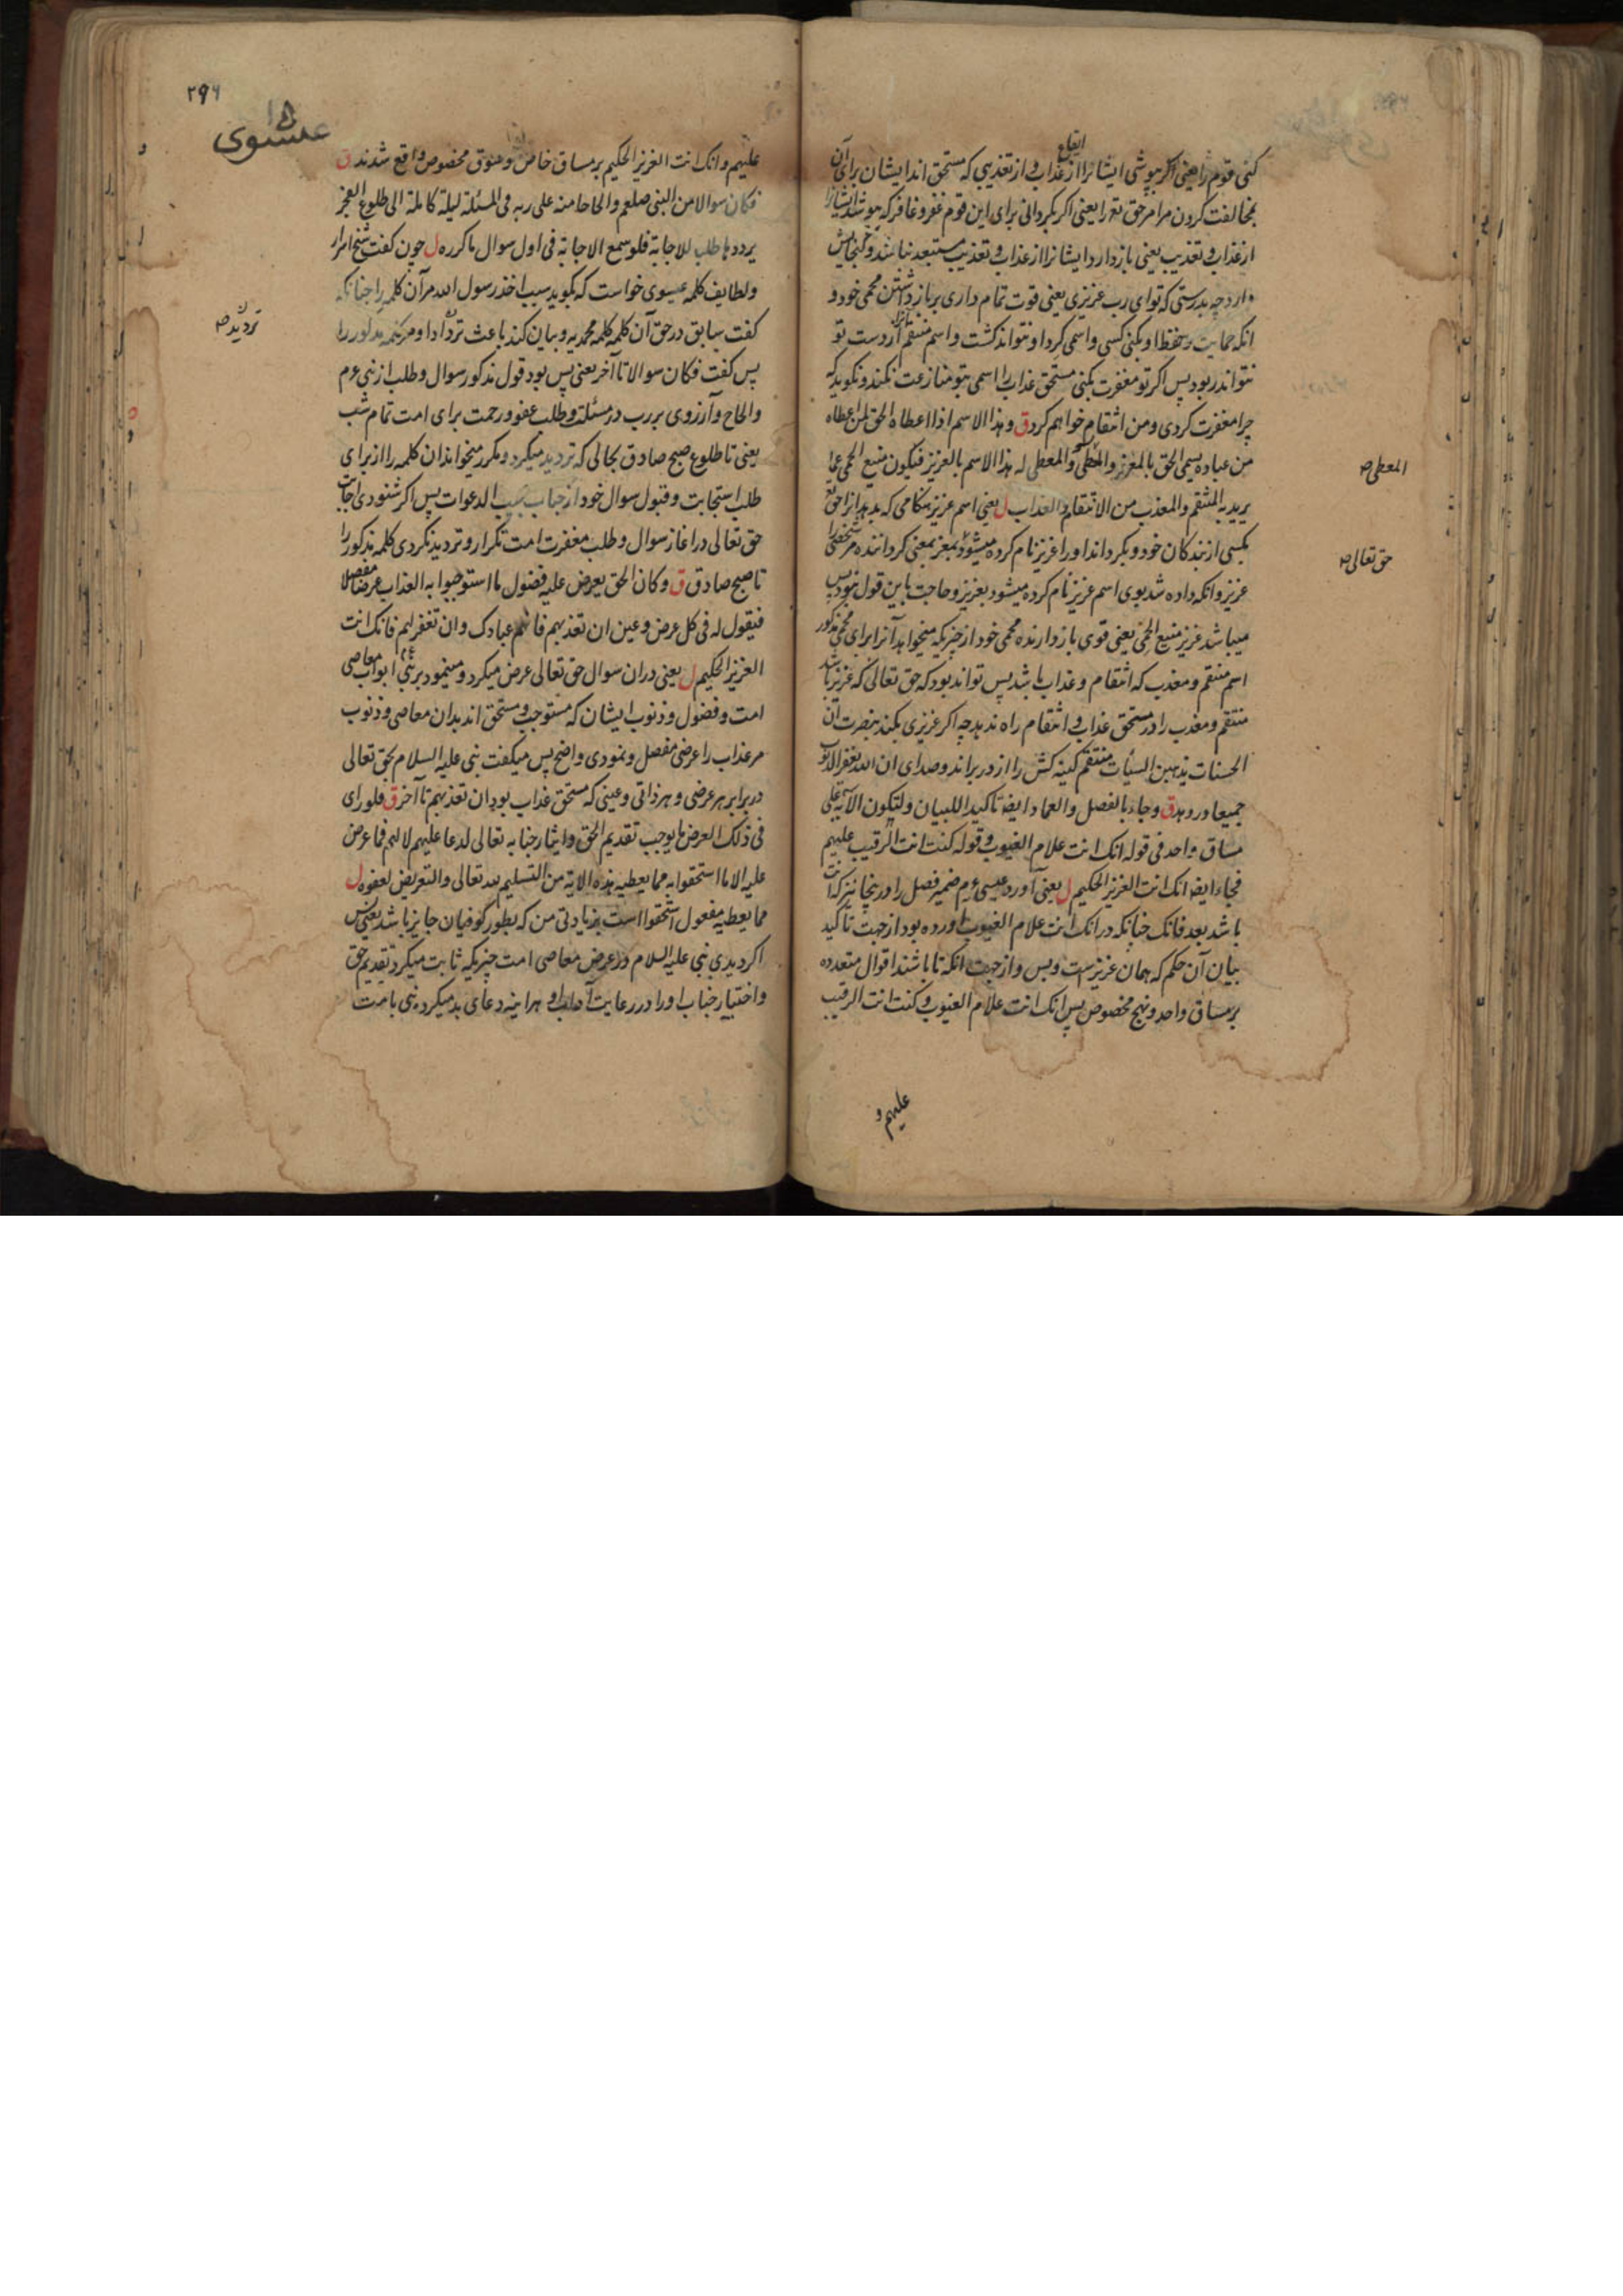 ایقاع
کنی قوم را یعنی اگر بپوشی ایشانرا از عذاب و از تعذیبی که مستحق اند ایشان برای آن
بمخالفت کردن مرامر حق تع را یعنی اکر بکردانی برای این قوم غفر و غافر که بپوشد ایشانرا
از عذاب و تعذیب یعنی بازدارد ایشانرا از عذاب و تعذیب مستبعد نباشد و گنجایش
دارد چه بدرستی که تو ای رب عزیزی یعنی قوت تمام داری بر بازداشتن محمی خود و
انکه حمایت و حفظ او بکنی کسی و اسمی کرد او نتواند کشت و اسم منتقم از دست تو
نتواند ربود پس اکر تو مغفرت بکنی مستحق عذاب را اسمی بتو منازعت نکند و نکوید که
چرا مغفرت کردی و من انتقام خواهم کرد ق وهذا الاسم اذا اعطاه الحق لمن اعطاه
من عباده یسمی الحق بالمعز والمعطی له هذا الاسم بالعزیز فیکون منیع الحمی عما
یرید به المنتقم والمعذب من الانتقام والعذاب ل یعنی اسم عزیز هنکامی که بدهد انرا حق تع
بکسی از بندکان خود و بکرداند او را عزیز نام کرده میشود بمعز بمعنی کرداننده مر شخصی را
عزیز و انکه داده شد بوی اسم عزیز نام کرده میشود بعزیز و حاجت باین قول نبود پس
میباشد عزیز منیع الحمی یعنی قوی بازدارنده محمی خود از چیزیکه میخواهد آنرا برای محمی مذکور
اسم منتقم و معذب که انتقام و عذاب باشد پس تواند بود که حق تعالی که عزیز باشد
منتقم و معذب را در مستحق عذاب و انتقام راه ندهد چه اکر عزیزی بکند بنصرت ان
الحسنات یذهبن السیئات منتقم کینه کش را از در براند و صدای ان الله یغفر الذنوب
جمیعا در دهد ق وجاء بالفصل والعماد ایضا تاکیدا للبیان ولتکون الآیة علی
مساق واحد فی قوله انک انت علام الغیوب وقوله کنت انت الرقیب علیهم
فجاء ایضا انک انت العزیز الحکیم ل یعنی آورد عیسی ع م ضمیر فصل را در ینجا نیز که انت
باشد بعد فانک چنانکه در انک انت علام الغیوب آورده بود از جهت تاکید
بیان آن حکم که همان عزیزست و بس و از جهت انکه تا باشند اقوال متعدده
بر مساق واحد و نهج مخصوص پس انک انت علام الغیوب و کنت انت الرقیب
علیهم و
المعطی صه
حق تعالی صه
۲۹۶
عیسوی
علیهم و انک انت العزیز الحکیم بر مساق خاص و سوق مخصوص واقع شدند ق
فکان سوالا من النبی صلعم والحاحا منه علی ربه فی المسئلة لیلة کاملة الی طلوع الفجر
یرددها طلب للاجابة فلو سمع الاجابة فی اول سوال ما کرره ل چون کفت شیخ اسرار
و لطایف کلمه عیسوی خواست که بکوید سبب اخذ رسول الله مر آن کلمه را چنانکه
کفت سابق در حق آن کلمه کلمه محمدیه و بیان کند باعث
پس کفت فکان سوالا تا آخر یعنی پس بود قول مذکور سوال و طلب از نبی ع م
و الحاح و آرزوی بر رب در مسئلت و طلب عفو و رحمت برای امت تمام شب
یعنی تا طلوع صبح صادق بحالی که تردید میکرد و مکرر میخواند ان کلمه را از برای
طلب استجابت و قبول سوال خود از جناب مجیب الدعوات پس اکر شنودی اجابت
حق تعالی در اغاز سوال و طلب مغفرت امت تکرار و تردید نکردی کلمه مذکور را
تا صبح صادق ق وکان الحق یعرض علیه فضول ما استوجبوا به العذاب عرضا مفصلا
فیقول له فی کل عرض وعین ان تعذبهم فانهم عبادک وان تغفر لهم فانک انت
العزیز الحکیم ل یعنی دران سوال حق تعالی عرض میکرد و مینمود بر نبی ع م ابواب معاصی
امت و فضول و ذنوب ایشان که مستوجب و مستحق اند بدان معاصی و ذنوب
مر عذاب را عرضی مفصل و نمودی واضح پس میکفت نبی علیه السلام بحق تعالی
در برابر هر عرضی و هر ذاتی و عینی که مستحق عذاب بود ان تعذبهم تا آخر ق فلو رای
فی ذلک العرض ما یوجب تقدیم الحق وایثار جنابه تعالی لدعا علیهم لا لهم فما عرض
علیه الا ما استحقوا به مما یعطیه هذه الآیة من التسلیم لله تعالی والتعریض لعفوه ل
مما یعطیه مفعول استحقوا است بزیادتی من که بطور کوفیان جایز باشد یعنی پس
اکر دیدی نبی علیه السلام در عرض معاصی امت چیزیکه ثابت میکرد تقدیم حق
و اختیار جناب او را در رعایت آداب او هراینه دعای بد میکرد نبی بامت
تردید صه